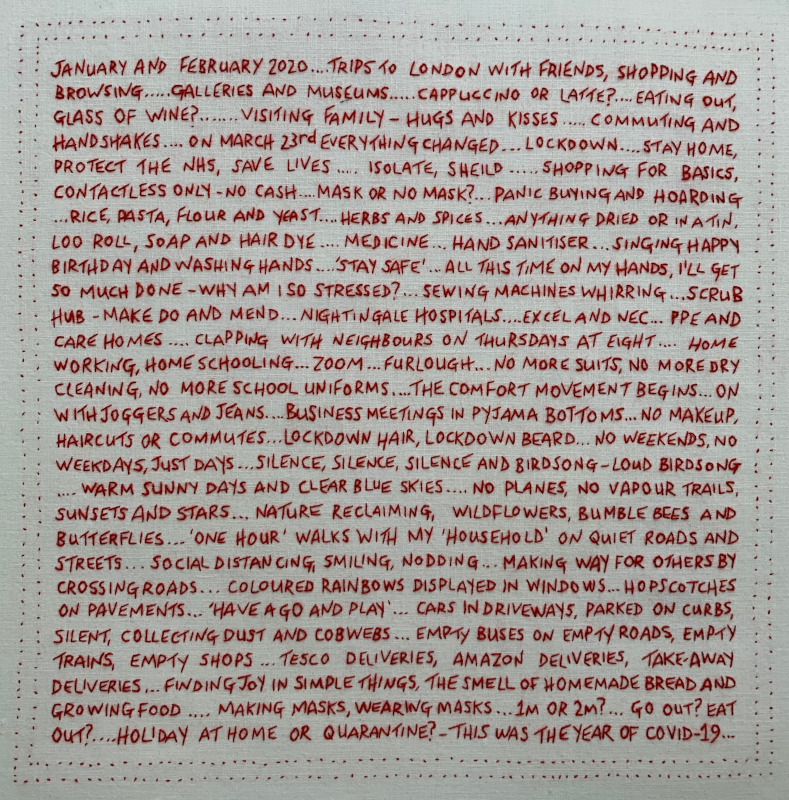 JANUARY AND FEBRUARY 2020....TRIPS TO LONDON WITH FRIENDS, SHOPPING AND
BROWSING.....GALLERIES AND MUSEUMS.....CAPPUCCINO OR LATTE?....EATING OUT,
GLASS OF WINE?.......VISITING FAMILY - HUGS AND KISSES .....COMMUTING AND
HANDSHAKES.... ON MARCH 23rd EVERYTHING CHANGED... LOCKDOWN....STAY HOME,
PROTECT THE NHS, SAVE LIVES ..... ISOLATE, SHEILD .....SHOPPING FOR BASICS,
CONTACTLESS ONLY - NO CASH....MASK OR NO MASK?... PANIC BUYING AND HOARDING
...RICE, PASTA, FLOUR AND YEAST....HERBS AND SPICES...ANYTHING DRIED OR IN A TIN.
LOO ROLL, SOAP AND HAIR DYE .... MEDICINE... HAND SANITISER...SINGING HAPPY
BIRTHDAY AND WASHING HANDS....'STAY SAFE'...ALL THIS TIME ON MY HANDS, I'LL GET
SO MUCH DONE - WHY AM I SO STRESSED?...SEWING MACHINES WHIRRING...SCRUB
HUB - MAKE DO AND MEND...NIGHTINGALE HOSPITALS....EXCEL AND NEC... PPE AND
CARE HOMES .... CLAPPING WITH NEIGHBOURS ON THURSDAYS AT EIGHT.... HOME
WORKING, HOME SCHOOLING... ZOOM...FURLOUGH....NO MORE SUITS, NO MORE DRY
CLEANING, NO MORE SCHOOL UNIFORMS....THE COMFORT MOVEMENT BEGINS...ON
WITH JOGGERS AND JEANS...BUSINESS MEETINGS IN PYJAMA BOTTOMS...NO MAKEUP,
HAIRCUTS OR COMMUTES...LOCKDOWN HAIR, LOCKDOWN BEARD... NO WEEKENDS, NO
WEEKDAYS, JUST DAYS...SILENCE, SILENCE, SILENCE AND BIRDSONG - LOUD BIRDSONG
.... WARM SUNNY DAYS AND CLEAR BLUE SKIES.... NO PLANES, NO VAPOUR TRAILS,
SUNSETS AND STARS... NATURE RECLAIMING, WILDFLOWERS, BUMBLE BEES AND
BUTTERFLIES...'ONE HOUR' WALKS WITH MY 'HOUSEHOLD' ON QUIET ROADS AND
STREETS... SOCIAL DISTANCING, SMILING, NODDING... MAKING WAY FOR OTHERS BY
CROSSING ROADS... COLOURED RAINBOWS DISPLAYED IN WINDOWS... HOPSCOTCHES
ON PAVEMENTS... 'HAVE A GO AND PLAY'... CARS IN DRIVEWAYS, PARKED ON CURBS,
SILENT, COLLECTING DUST AND COBWEBS... EMPTY BUSES ON EMPTY ROADS, EMPTY
TRAINS, EMPTY SHOPS ...TESCO DELIVERIES, AMAZON DELIVERIES, TAKE-AWAY
DELIVERIES... FINDING JOY IN SIMPLE THINGS, THE SMELL OF HOMEMADE BREAD AND
GROWING FOOD .... MAKING MASKS, WEARING MASKS...1M OR 2M?... GO OUT? EAT
OUT?....HOLIDAY AT HOME OR QUARANTINE? - THIS WAS THE YEAR OF COVID-19...